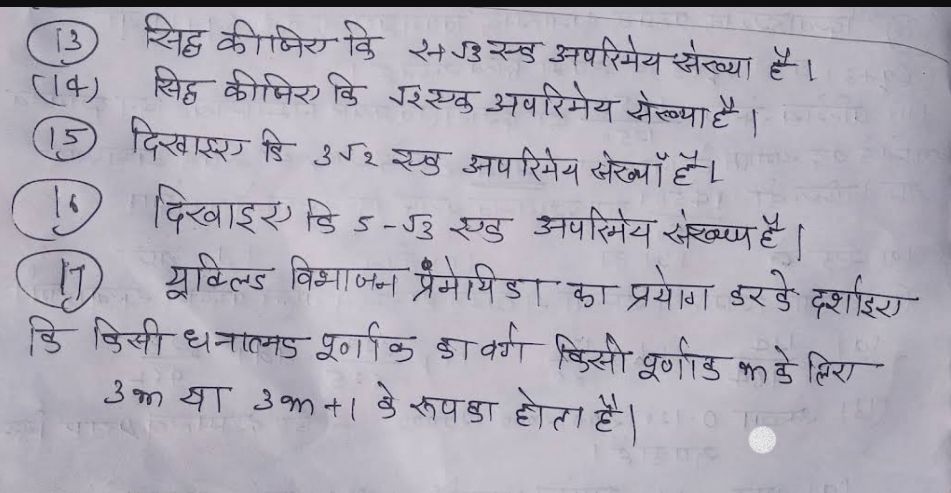 (13) सिद्ध कीजिए कि 2+√3 एक अपरिमेय संख्या है।
(14) सिद्ध कीजिए कि √2 एक अपरिमेय संख्या है।
(15) दिखाइए कि 3√2 एक अपरिमेय संख्याँ है।
(16) दिखाइए कि 5-√3 एक अपरिमेय संख्या है।
(17) यूक्लिड विभाजन प्रंमेयिका का प्रयोग करके दर्शाइए
कि किसी धनात्मक पूर्णांक का वर्ग किसी पूर्णांक m के लिए
3m या 3m+1 के रूप का होता है।